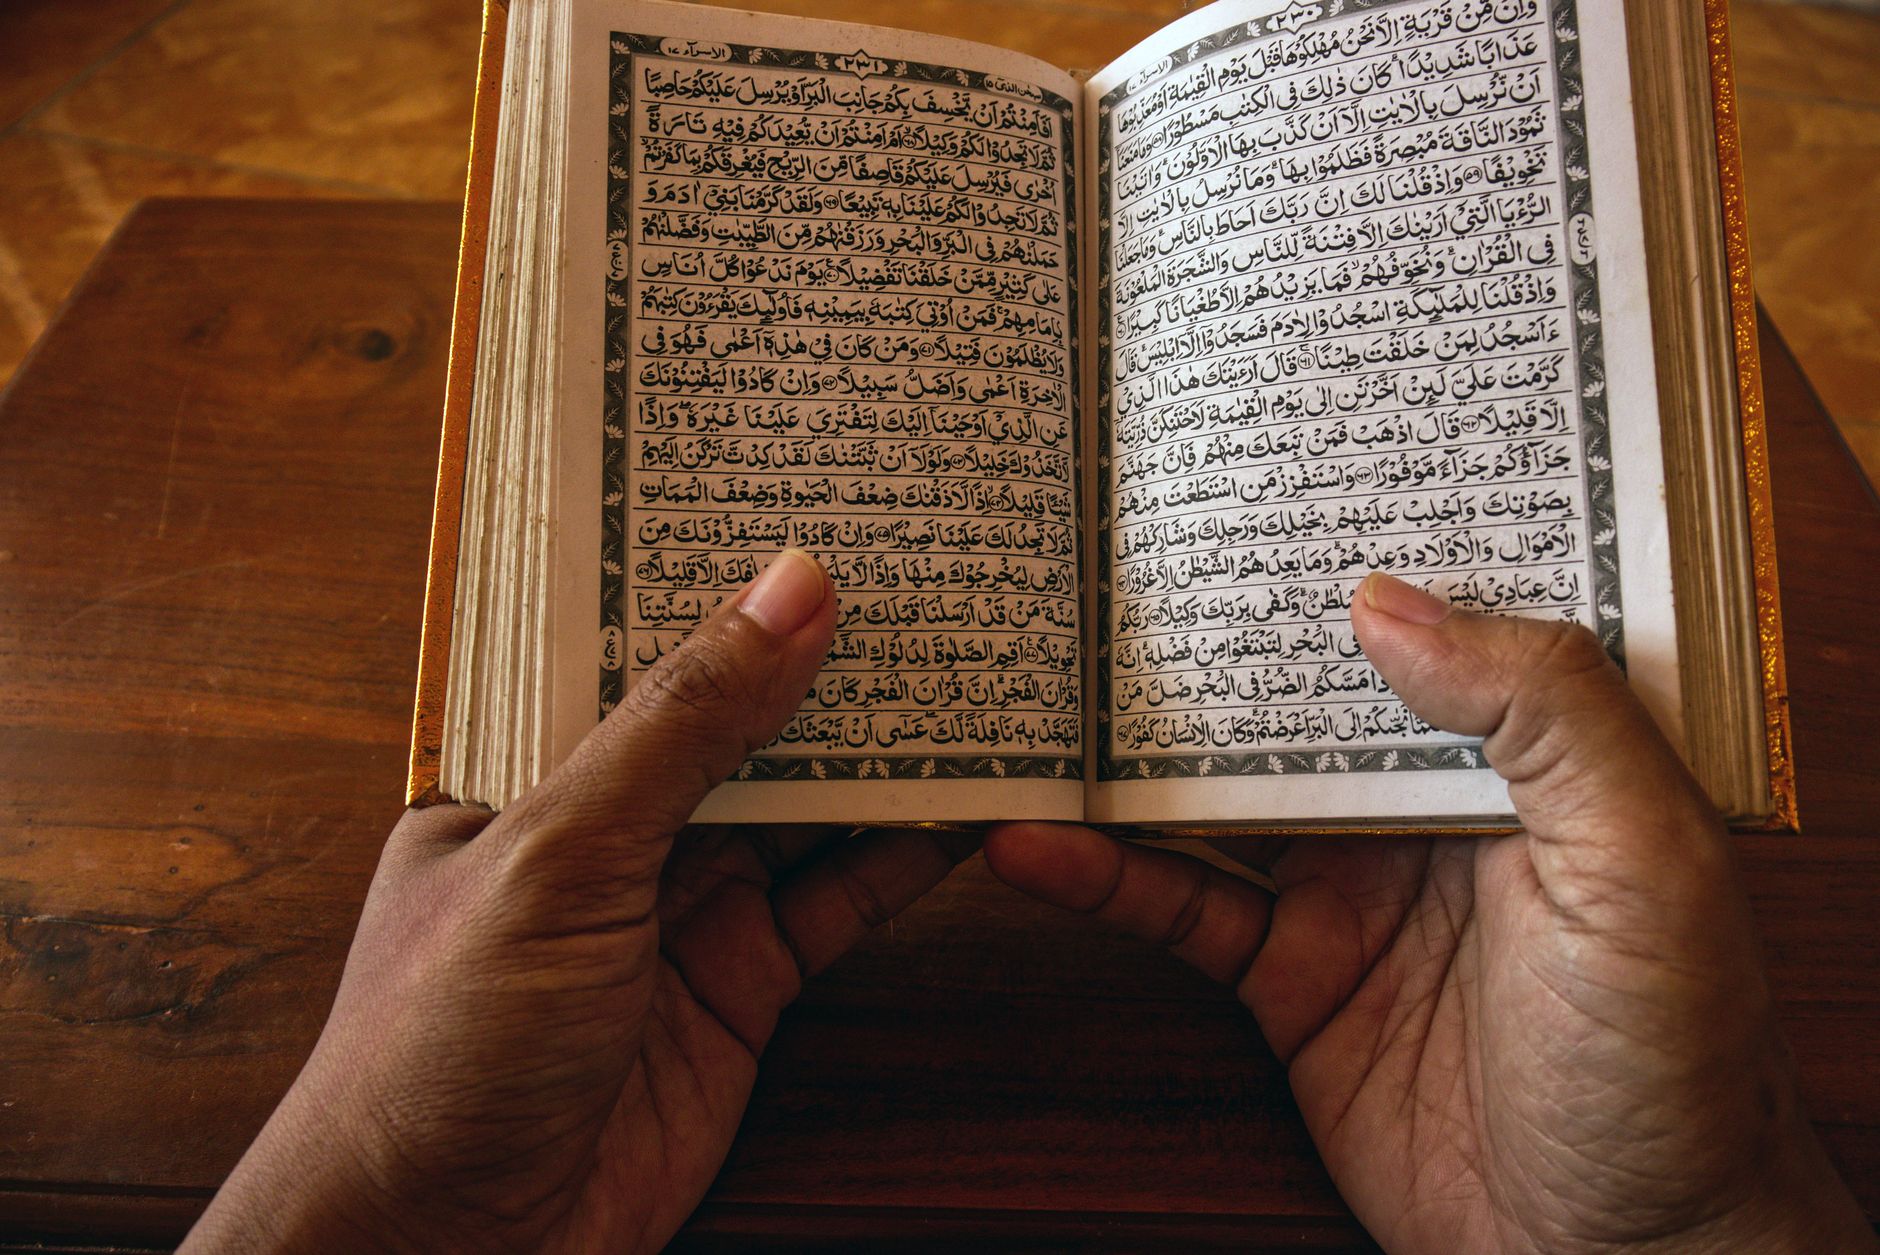 الاسراء ١٧
٢٣٠
وَاِنْ مِّنْ قَرْيَةٍ اِلَّا نَحْنُ مُهْلِكُوْهَا قَبْلَ يَوْمِ الْقِيٰمَةِ اَوْ مُعَذِّبُوْهَا
عَذَابًا شَدِيْدًا ۗ كَانَ ذٰلِكَ فِى الْكِتٰبِ مَسْطُوْرًا ٥٨ وَمَا مَنَعَنَآ
اَنْ نُّرْسِلَ بِالْاٰيٰتِ اِلَّآ اَنْ كَذَّبَ بِهَا الْاَوَّلُوْنَ ۗ وَاٰتَيْنَا
ثَمُوْدَ النَّاقَةَ مُبْصِرَةً فَظَلَمُوْا بِهَا ۗ وَمَا نُرْسِلُ بِالْاٰيٰتِ اِلَّا
تَخْوِيْفًا ٥٩ وَاِذْ قُلْنَا لَكَ اِنَّ رَبَّكَ اَحَاطَ بِالنَّاسِ ۗ وَمَا جَعَلْنَا
الرُّءْيَا الَّتِيْٓ اَرَيْنٰكَ اِلَّا فِتْنَةً لِّلنَّاسِ وَالشَّجَرَةَ الْمَلْعُوْنَةَ
فِى الْقُرْاٰنِ ۗ وَنُخَوِّفُهُمْ ۙ فَمَا يَزِيْدُهُمْ اِلَّا طُغْيَانًا كَبِيْرًا ٦٠
وَاِذْ قُلْنَا لِلْمَلٰٓئِكَةِ اسْجُدُوْا لِاٰدَمَ فَسَجَدُوْٓا اِلَّآ اِبْلِيْسَ ۗ قَالَ
ءَاَسْجُدُ لِمَنْ خَلَقْتَ طِيْنًا ٦١ قَالَ اَرَءَيْتَكَ هٰذَا الَّذِيْ
كَرَّمْتَ عَلَيَّ لَىِٕنْ اَخَّرْتَنِ اِلٰى يَوْمِ الْقِيٰمَةِ لَاَحْتَنِكَنَّ ذُرِّيَّتَهٗٓ
اِلَّا قَلِيْلًا ٦٢ قَالَ اذْهَبْ فَمَنْ تَبِعَكَ مِنْهُمْ فَاِنَّ جَهَنَّمَ
جَزَاۤؤُكُمْ جَزَاۤءً مَّوْفُوْرًا ٦٣ وَاسْتَفْزِزْ مَنِ اسْتَطَعْتَ مِنْهُمْ
بِصَوْتِكَ وَاَجْلِبْ عَلَيْهِمْ بِخَيْلِكَ وَرَجِلِكَ وَشَارِكْهُمْ فِى
الْاَمْوَالِ وَالْاَوْلَادِ وَعِدْهُمْ ۗ وَمَا يَعِدُهُمُ الشَّيْطٰنُ اِلَّا غُرُوْرًا ٦٤
اِنَّ عِبَادِيْ لَيْسَ سُلْطٰنٌ ۗ وَكَفٰى بِرَبِّكَ وَكِيْلًا ٦٥ رَبُّكُمُ
فِى الْبَحْرِ لِتَبْتَغُوْا مِنْ فَضْلِهٖ ۗ اِنَّهٗ
مَسَّكُمُ الضُّرُّ فِى الْبَحْرِ ضَلَّ مَنْ
نَجّٰىكُمْ اِلَى الْبَرِّ اَعْرَضْتُمْ ۗ وَكَانَ الْاِنْسَانُ كَفُوْرًا ٦٧
سبحن الذى ١٥
٢٣١
الاسراء ١٧
اَفَاَمِنْتُمْ اَنْ يَّخْسِفَ بِكُمْ جَانِبَ الْبَرِّ اَوْ يُرْسِلَ عَلَيْكُمْ حَاصِبًا
ثُمَّ لَا تَجِدُوْا لَكُمْ وَكِيْلًا ٦٨ اَمْ اَمِنْتُمْ اَنْ يُّعِيْدَكُمْ فِيْهِ تَارَةً
اُخْرٰى فَيُرْسِلَ عَلَيْكُمْ قَاصِفًا مِّنَ الرِّيْحِ فَيُغْرِقَكُمْ بِمَا كَفَرْتُمْ ۙ
ثُمَّ لَا تَجِدُوْا لَكُمْ عَلَيْنَا بِهٖ تَبِيْعًا ٦٩ وَلَقَدْ كَرَّمْنَا بَنِيْٓ اٰدَمَ وَ
حَمَلْنٰهُمْ فِى الْبَرِّ وَالْبَحْرِ وَرَزَقْنٰهُمْ مِّنَ الطَّيِّبٰتِ وَفَضَّلْنٰهُمْ
عَلٰى كَثِيْرٍ مِّمَّنْ خَلَقْنَا تَفْضِيْلًا ٧٠ يَوْمَ نَدْعُوْا كُلَّ اُنَاسٍ
بِاِمَامِهِمْ ۚ فَمَنْ اُوْتِيَ كِتٰبَهٗ بِيَمِيْنِهٖ فَاُولٰۤىِٕكَ يَقْرَءُوْنَ كِتٰبَهُمْ
وَلَا يُظْلَمُوْنَ فَتِيْلًا ٧١ وَمَنْ كَانَ فِيْ هٰذِهٖٓ اَعْمٰى فَهُوَ فِى
الْاٰخِرَةِ اَعْمٰى وَاَضَلُّ سَبِيْلًا ٧٢ وَاِنْ كَادُوْا لَيَفْتِنُوْنَكَ
عَنِ الَّذِيْٓ اَوْحَيْنَآ اِلَيْكَ لِتَفْتَرِيَ عَلَيْنَا غَيْرَهٗ ۖ وَاِذًا
لَّاتَّخَذُوْكَ خَلِيْلًا ٧٣ وَلَوْلَآ اَنْ ثَبَّتْنٰكَ لَقَدْ كِدْتَّ تَرْكَنُ اِلَيْهِمْ
شَيْـًٔا قَلِيْلًا ٧٤ اِذًا لَّاَذَقْنٰكَ ضِعْفَ الْحَيٰوةِ وَضِعْفَ الْمَمَاتِ
ثُمَّ لَا تَجِدُ لَكَ عَلَيْنَا نَصِيْرًا ٧٥ وَاِنْ كَادُوْا لَيَسْتَفِزُّوْنَكَ مِنَ
الْاَرْضِ لِيُخْرِجُوْكَ مِنْهَا وَاِذًا لَّا اِلَّا قَلِيْلًا ٧٦
سُنَّةَ مَنْ قَدْ اَرْسَلْنَا قَبْلَكَ مِنْ لِسُنَّتِنَا
تَحْوِيْلًا ٧٧ اَقِمِ الصَّلٰوةَ لِدُلُوْكِ الشَّمْسِ
وَقُرْاٰنَ الْفَجْرِ ۗ اِنَّ قُرْاٰنَ الْفَجْرِ كَانَ
فَتَهَجَّدْ بِهٖ نَافِلَةً لَّكَ ۖ عَسٰٓى اَنْ يَّبْعَثَكَ